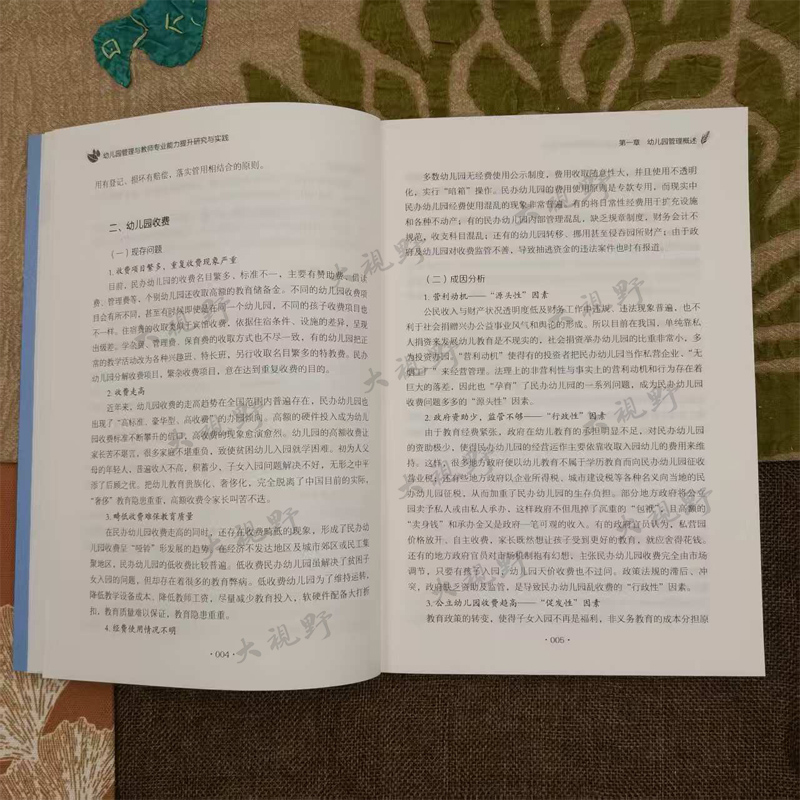 幼儿园管理与教师专业能力提升研究与实践
用有登记、损坏有赔偿，落实管用相结合的原则。
二、幼儿园收费
（一）现存问题
1.收费项目繁多，重复收费现象严重
目前，民办幼儿园的收费名目繁多，标准不一，主要有赞助费、借读
费、管理费等，个别幼儿园还收取高额的教育储备金。不同的幼儿园收费项
目会有所不同，甚至有时候即使是在同一个幼儿园，不同的孩子收费项目也
不一样。住宿费的收取类似于宾馆收费，依据住宿条件、设施的差异，呈现
出级差。学杂费、管理费、保育费的收取方式也不尽一致，有的幼儿园把正
常的教学活动改为各种兴趣班、特长班，另行收取名目繁多的特教费。民办
幼儿园分解收费项目，繁杂收费项目，意在达到重复收费的目的。
2.收费走高
近年来，幼儿园收费的走高趋势在全国范围内普遍存在，民办幼儿园也
出现了“高标准、豪华型、高收费”的办园倾向。高额的硬件投入成为幼儿
园收费标准不断攀升的借口，高收费的现象愈演愈烈。幼儿园的高额收费让
家长苦不堪言，很多家庭不堪重负，致使贫困幼儿入园就学困难。初为人父
母的年轻人，普遍收入不高，积蓄少，子女入园问题解决不好，无形之中平
添了后顾之忧。把幼儿教育贵族化、奢侈化，完全脱离了中国目前的实际，
“奢侈”教育隐患重重，高额收费令家长叫苦不迭。
3.畸低收费难保教育质量
在民办幼儿园收费走高的同时，还存在收费畸低的现象，形成了民办幼
儿园收费呈“哑铃”形发展的趋势，在经济不发达地区及城市郊区或民工集
聚地区，民办幼儿园的低收费比较普遍。低收费民办幼儿园虽解决了贫困子
女入园的问题，但却存在着很多的教育弊病。低收费幼儿园为了维持运转，
降低教学设备成本、降低教师工资，尽量减少教育投入，软硬件配备大打折
扣，教育质量难以保证，教育隐患重重。
4.经费使用情况不明
·004·
第一章 幼儿园管理概述
多数幼儿园无经费使用公示制度，费用收取随意性大，并且使用不透明
化，实行“暗箱”操作。民办幼儿园的费用使用原则是专款专用，而现实中
民办幼儿园经费使用混乱的现象非常普遍。有的将日常性经费用于扩充设施
和各种不动产；有的民办幼儿园内部管理混乱，缺乏规章制度，财务会计不
规范，收支科目混乱；还有的幼儿园转移、挪用甚至侵吞园所财产；由于政
府及幼儿园对收费监管不善，导致抽逃资金的违法案件也时有报道。
（二）成因分析
1.营利动机——“源头性”因素
公民收入与财产状况透明度低及财务工作中违规、违法现象普遍，也不
利于社会捐赠兴办公益事业风气和舆论的形成。所以目前在我国，单纯靠私
人捐资来发展幼儿教育是不现实的，社会捐资举办幼儿园的比重非常小，多
为投资办园。“营利动机”使得有的投资者把民办幼儿园当作私营企业、“无
烟工厂”来经营管理。法理上的非营利性与事实上的营利动机和行为存在着
巨大的落差，因此也“孕育”了民办幼儿园的一系列问题，成为民办幼儿园
收费问题多多的“源头性”因素。
2.政府资助少，监管不够——“行政性”因素
由于教育经费紧张，政府在幼儿教育的多担明显不多，对民办幼儿园
的资助极少，使得民办幼儿园的经营运作主要依靠收取入园幼儿的费用来维
持。这样，很多地方政府便以幼儿教育不属于学历教育而向民办幼儿园征收
营业税；还有些地方政府以企业所得税、城市建设税等各种名义向当地的民
办幼儿园征税，从而加重了民办幼儿园的生存负担。部分地方政府将公办
园卖于私人或由私人承办，这样政府不但甩掉了沉重的“包袱”，且高额的
“卖身钱”和承办金又是政府一笔可观的收入。有的政府官员认为，私营园
价格放开、自主收费，家长既然想让孩子受到更好的教育，就应舍得花钱。
还有的地方政府官员对市场机制抱有幻想，主张民办幼儿园收费完全由市场
调节，只要有孩子入园，幼儿园天价收费也不过问。政策法规的滞后、冲
突，政府缺乏资助及监管，是导致民办幼儿园乱收费的“行政性”因素。
3.公立幼儿园收费超高——“促发性”因素
教育政策的转变，使得子女入园不再是福利，非义务教育的成本分担原
·005·
大视野
大视野
大视野
大视野
大视野
大视野
大视野
大视野
大视野
大视野